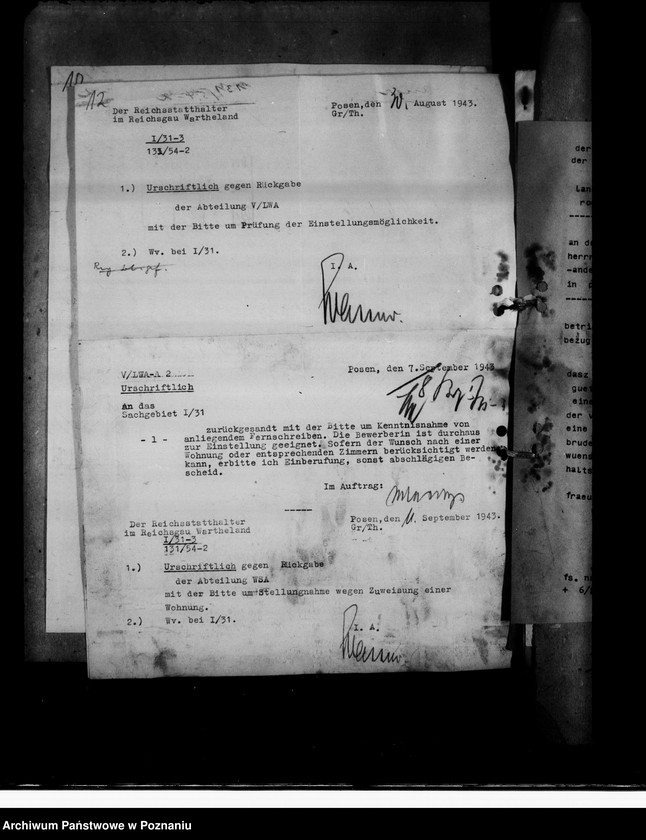 10
12
Der Reichsstatthalter
im Reichsgau Wartheland
Posen, den 30. August 1943.
Gr/Th.
I/31-3
131/54-2
1.) Urschriftlich gegen Rückgabe
der Abteilung V/LWA
mit der Bitte um Prüfung der Einstellungsmöglichkeit.
2.) Wv. bei I/31.
I. A.
V/LWA-A 2
Posen, den 7.September 1943
Urschriftlich
An das
Sachgebiet I/31
zurückgesandt mit der Bitte um Kenntnisnahme von
- 1 - anliegendem Fernschreiben. Die Bewerberin ist durchaus
zur Einstellung geeignet. Sofern der Wunsch nach einer
Wohnung oder entsprechenden Zimmern berücksichtigt werden
kann, erbitte ich Einberufung, sonst abschlägigen Be-
scheid.
Im Auftrag:
Der Reichsstatthalter
im Reichsgau Wartheland
Posen, den 11. September 1943.
Gr/Th.
I/31-3
131/54-2
1.) Urschriftlich gegen Rückgabe
der Abteilung WSA
mit der Bitte um Stellungnahme wegen Zuweisung einer
Wohnung.
2.) Wv. bei I/31.
I. A.
der
der
Lan
an de
herrn
-ande
in p
betri
bezug
dasz
gues
eine
der w
eine
brude
wuens
halts
fraeu
fs. no
+ 6/
Archiwum Państwowe w Poznaniu